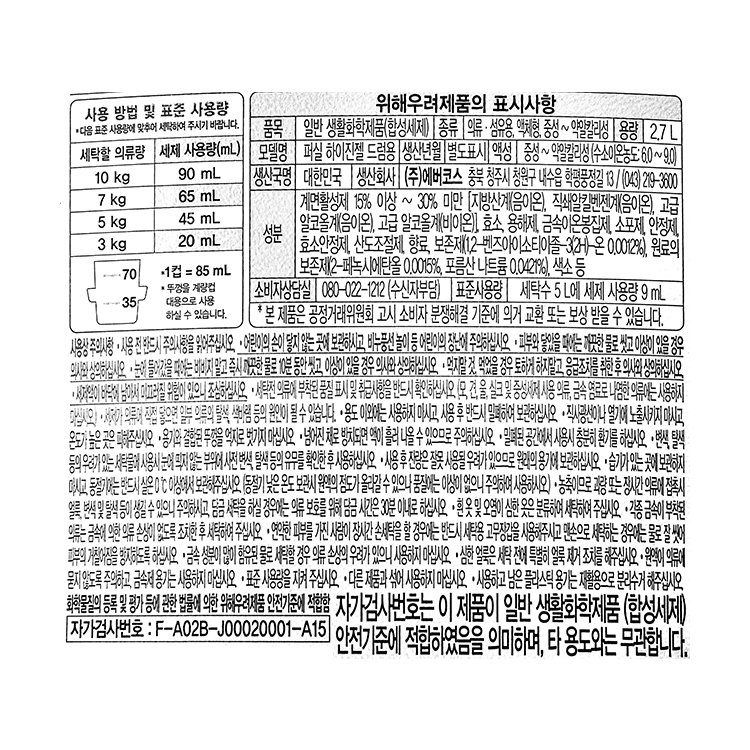 사용 방법 및 표준 사용량
*다음 표준 사용량에 맞추어 세탁하여 주시기 바랍니다.
세탁할 의류량 세제 사용량(mL)
10 kg 90 mL
7 kg 65 mL
5 kg 45 mL
3 kg 20 mL
70
35
•1컵 = 85 mL
* 뚜껑을 계량컵
대용으로 사용
하실 수 있습니다.
위해우려제품의 표시사항
품목 일반 생활화학제품(합성세제) 종류 의류·섬유용, 액체형, 중성 ~ 약알칼리성 용량 2,7 L
모델명 퍼실 하이진젤 드럼용 생산년월 별도표시 액성 중성 ~ 약알칼리성 (수소이온농도: 6.0 ~ 9.0)
생산국명 대한민국 생산회사 (주)에버코스 충북 청주시 청원구 내수읍 학평풍정길 13 / (043) 219-3600
성분 계면활성제 15% 이상 ~ 30% 미만 [지방산계(음이온), 직쇄알킬벤젠계(음이온), 고급
알코올계(음이온), 고급 알코올계(비이온)], 효소, 용해제, 금속이온봉집제, 소포제, 안정제,
효소안정제, 산도조절제, 향료, 보존제(1,2-벤즈아이소티아졸-3(2H)-온 0.0012%), 원료의
보존제(2-페녹시에탄올 0.0015%, 포름산 나트륨 0.0421%), 색소 등
소비자상담실 080-022-1212 (수신자부담) 표준사용량 세탁수 5 L에 세제 사용량 9 mL
* 본 제품은 공정거래위원회 고시 소비자 분쟁해결 기준에 의거 교환 또는 보상 받을 수 있습니다.
사용상 주의사항 • 사용 전 반드시 주의사항을 읽어주십시오. • 어린이의 손이 닿지 않는 곳에 보관하시고, 비눗풍선 놀이 등 어린이의 장난에 주의하십시오. • 피부와 닿았을 때에는 깨끗한 물로 씻고 이상이 있을 경우
의사와 상의하십시오. • 눈에 들어갔을 때에는 비비지 말고 즉시 깨끗한 물로 10분 동안 씻고, 이상이 있을 경우 의사와 상의하십시오. • 먹지말 것, 먹었을 경우 토하게 하지 말고, 응급조치를 취한 후 의사와 상의하십시오.
• 세제액이 바닥에 남아서 미끄러질 위험이 있으니 조심하십시오. • 세탁전 의류에 부착된 품질 표시 및 취급사항을 반드시 확인하십시오. (모, 견, 울, 실크 및 중성세제 사용 의류, 금속 염료로 나염한 의류에는 사용하지
마십시오.) • 세제가 의류에 직접 닿으면 일부 의류의 탈색, 색바램 등의 원인이 될 수 있습니다. • 용도 이외에는 사용하지 마시고, 사용 후 반드시 밀폐하여 보관하십시오. • 직사광선이나 열기에 노출시키지 마시고,
온도가 높은 곳은 피해주십시오. • 용기와 결합된 뚜껑을 억지로 벗기지 마십시오. • 넘어진 채로 방치되면 액이 흘러 나올 수 있으므로 주의하십시오. • 밀폐된 공간에서 사용시 충분히 환기를 하십시오. • 변색, 탈색
등의 우려가 있는 세탁물에 사용시 눈에 띄지 않는 부위에 사전 변색, 탈색 등의 유무를 확인한 후 사용하십시오. • 사용 후 잔량은 잘못 사용될 우려가 있으므로 원래의 용기에 보관하십시오. • 습기가 있는 곳에 보관하지
마시고, 동절기에는 반드시 실온 0℃ 이상에서 보관해주십시오. (동절기 낮은 온도 보관시 원액의 점도가 올라갈 수 있으나 품질에는 이상이 없으니 주의하여 사용하십시오.) • 농축이므로 과량 또는 장시간 의류에 접촉시
얼룩, 변색 및 탈색 등이 생길 수 있으니 주의하시고, 담금 세탁을 하실 경우에는 의류 보호를 위해 담금 시간은 30분 이내로 하십시오. • 흰 옷 및 오염이 심한 옷은 분류하여 세탁하여 주십시오. • 각종 금속이 부착된
의류는 금속에 의한 의류 손상이 없도록 조치한 후 세탁하여 주십시오. • 연약한 피부를 가진 사람이 장시간 손세탁을 할 경우에는 반드시 세탁용 고무장갑을 사용해주시고 맨손으로 세탁하는 경우에는 물로 잘 씻어
피부의 거칠어짐을 방지하도록 하십시오. • 금속 성분이 많이 함유된 물로 세탁할 경우 의류 손상의 우려가 있으니 사용하지 마십시오. • 심한 얼룩은 세탁 전에 특별히 얼룩 제거 조치를 해주십시오. • 원액이 의류에
묻지 않도록 주의하고, 금속제 용기는 사용하지 마십시오. • 표준 사용량을 지켜 주십시오. • 다른 제품과 섞어 사용하지 마십시오. • 사용하고 남은 플라스틱 용기는 재활용으로 분리수거 해주십시오.
화학물질의 등록 및 평가 등에 관한 법률에 의한 위해우려제품 안전기준에 적합함
자가검사번호 : F-A02B-J00020001-A15
자가검사번호는 이 제품이 일반 생활화학제품 (합성세제)
안전기준에 적합하였음을 의미하며, 타 용도와는 무관합니다.